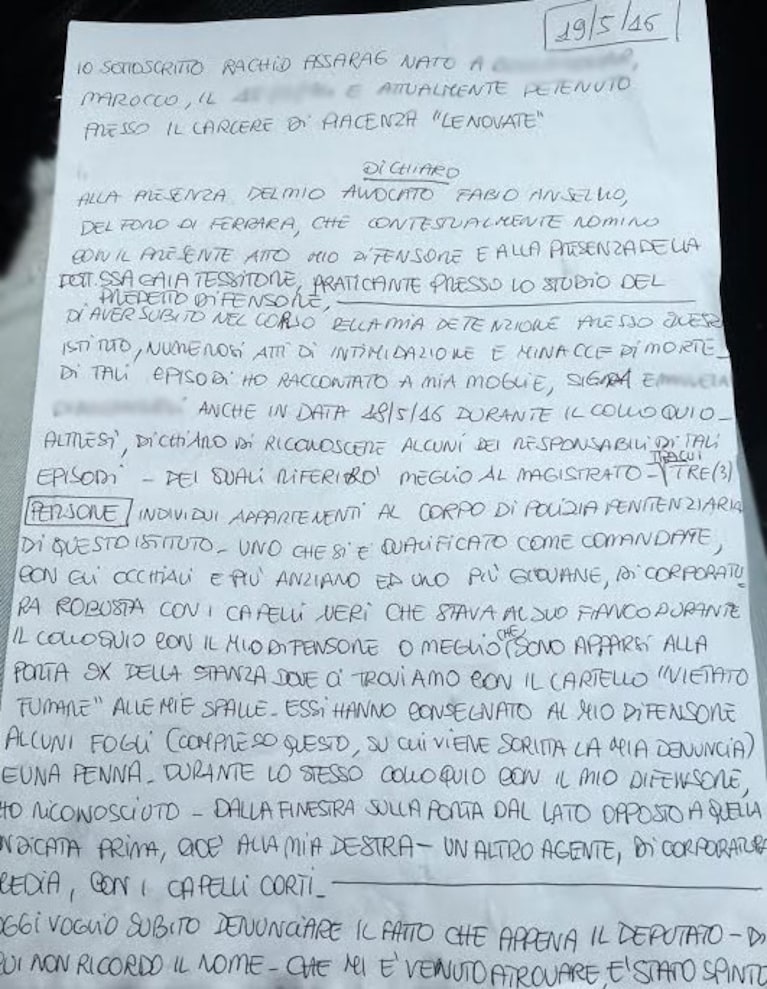 19/5/16
IO SOTTOSCRITTO RACHID ASSARAG NATO A
MAROCCO, IL E ATTUALMENTE DETENUTO
PRESSO IL CARCERE DI PIACENZA "LE NOVATE"
DICHIARO
ALLA PRESENZA DEL MIO AVVOCATO FABIO ANSELMO,
DEL FORO DI FERRARA, CHE CONTESTUALMENTE NOMINO
CON IL PRESENTE ATTO MIO DIFENSORE E ALLA PRESENZA DELLA
DOTT.SSA GAIA TESSITORE, PRATICANTE PRESSO LO STUDIO DEL
PREDETTO DIFENSORE,
DI AVER SUBITO NEL CORSO DELLA MIA DETENZIONE PRESSO QUEST
ISTITUTO, NUMEROSI ATTI DI INTIMIDAZIONE E MINACCE DI MORTE_
DI TALI EPISODI HO RACCONTATO A MIA MOGLIE, SIGNRA
ANCHE IN DATA 18/5/16 DURANTE IL COLLOQUIO_
ALTRESÌ, DICHIARO DI RICONOSCERE ALCUNI DEI RESPONSABILI DI TALI
EPISODI - DEI QUALI RIFERIRO' MEGLIO AL MAGISTRATO - TRA CUI TRE (3)
PERSONE INDIVIDUI APPARTENENTI AL CORPO DI POLIZIA PENITENZIARIA
DI QUESTO ISTITUTO_ UNO CHE SI È QUALIFICATO COME COMANDATE,
CON GLI OCCHIALI E PIÙ ANZIANO ED UNO PIÙ GIOVANE, DI CORPORATU
RA ROBUSTA CON I CAPELLI NERI CHE STAVA AL SUO FIANCO DURANTE
IL COLLOQUIO CON IL MIO DIFENSORE O MEGLIO CHE SONO APPARSI ALLA
PORTA SX DELLA STANZA DOVE CI TROVIAMO CON IL CARTELLO "VIETATO
FUMARE" ALLE MIE SPALLE_ ESSI HANNO CONSEGNATO AL MIO DIFENSORE
ALCUNI FOGLI (COMPRESO QUESTO, SU CUI VIENE SCRITTA LA MIA DENUNCIA)
E UNA PENNA_ DURANTE LO STESSO COLLOQUIO CON IL MIO DIFENSORE,
HO RICONOSCIUTO - DALLA FINESTRA SULLA PORTA DAL LATO OPPOSTO A QUELLA
INDICATA PRIMA, CIOÈ ALLA MIA DESTRA - UN ALTRO AGENTE, DI CORPORATURA
MEDIA, CON I CAPELLI CORTI_
OGGI VOGLIO SUBITO DENUNCIARE IL FATTO CHE APPENA IL DEPUTATO - DI
CUI NON RICORDO IL NOME - CHE MI È VENUTO A TROVARE, E' STATO SPINTO